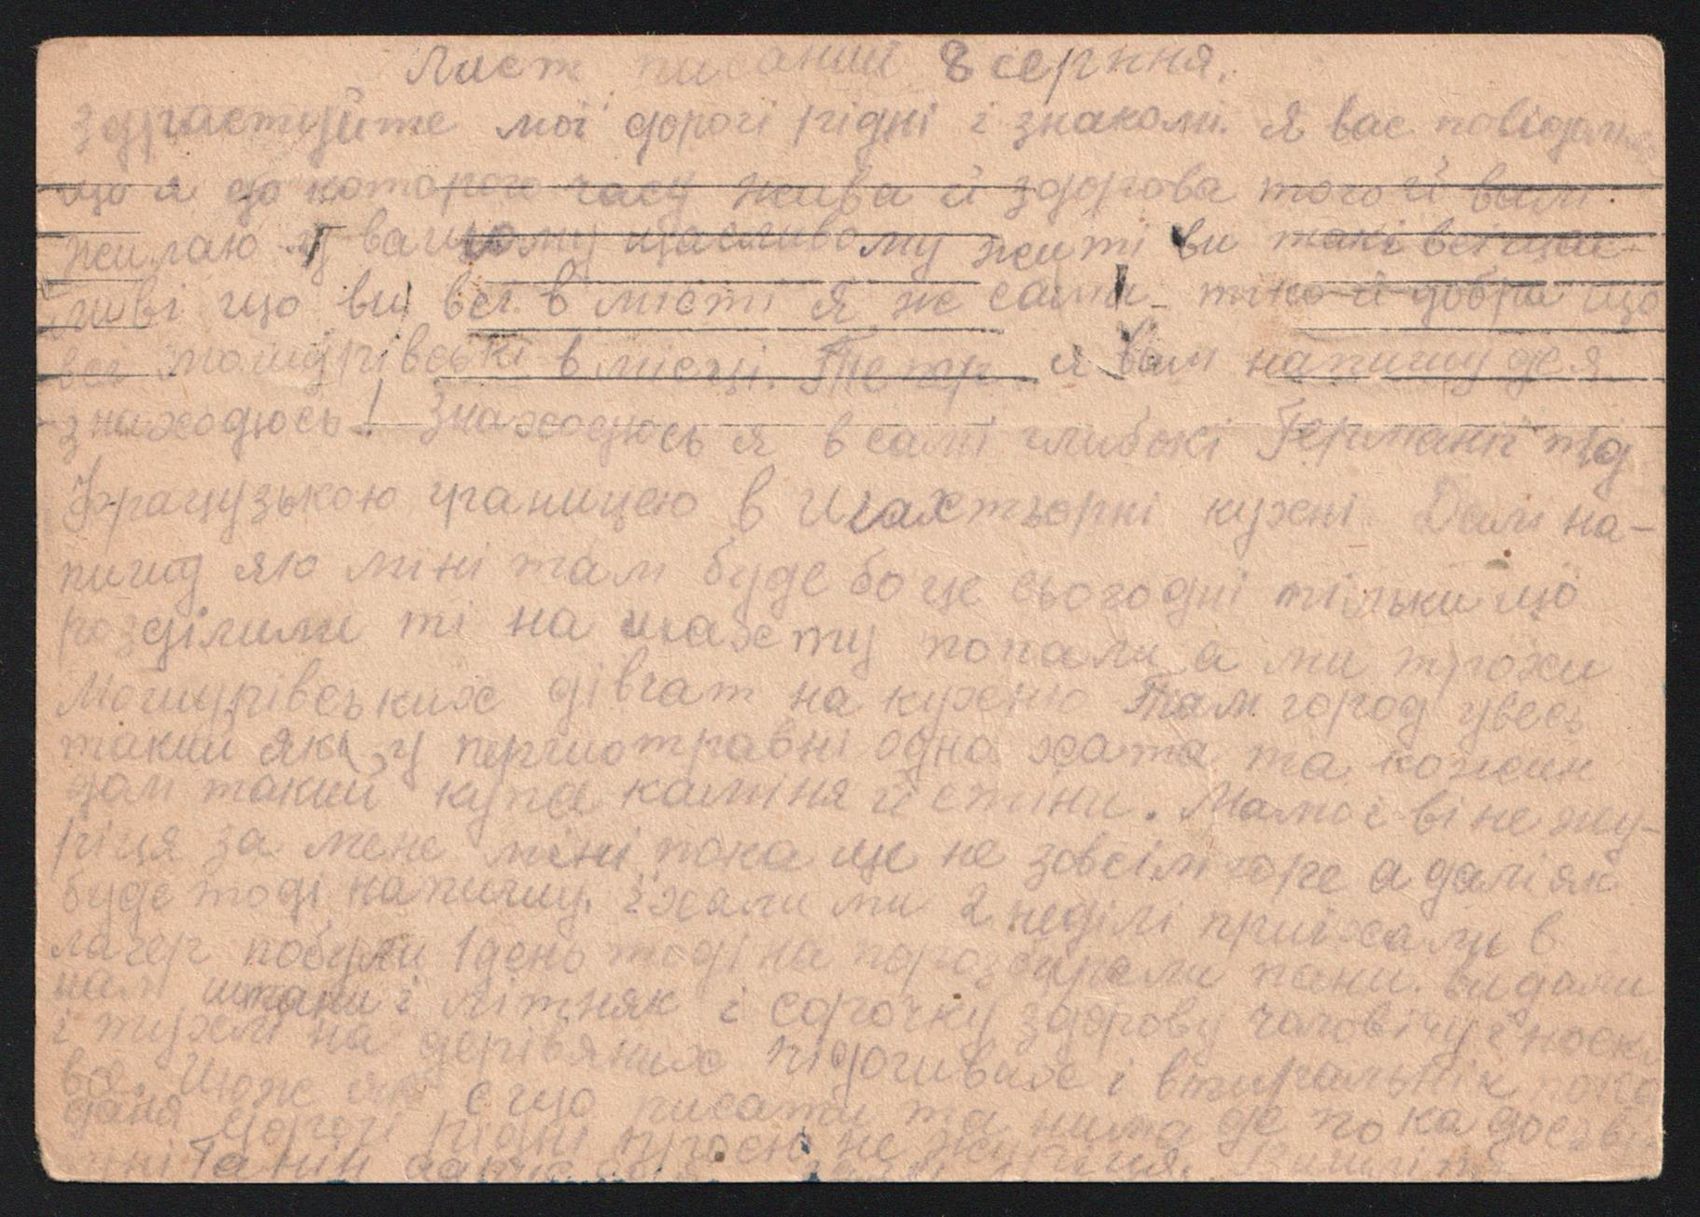 Лист писаний 8 серпння.
Здраствуйте мої дорогі рідні і знакомі. Я вас повідомляю
що я до которого часу жива й здорова того й вам
жилаю у вашому щасливому житі ви такі всі щас-
ливі що ви всі в місті Я ж сама тако й добре що
всі Мошурівські в місці. Тепер я вам напишу де я
знаходюсь! Знаходюсь я в самі глибокі Германії під
Фрацузькою границею в Шахтьорні кухні Далі на-
пишу яко міні там буде бо це сьогодні тільки що
розділили ті на шахту попали а ми трохи
Мошурівських дівчат на кухню Там город увесь
такий як у першотравні одна хата та кожин
дом такий купа каміня й стіни. Мамо і ві не жу-
ріця за мене міні пока ще не зовсім горе а далі як
буде тоді напишу. Їхали ми 2 неділі приїхали в
лагер побули 1 день тоді на порозбирали пани. видали
нам штани і літняк і сорочку здорову чоловічу і носки
і тухлі на дерівяних підошивах і втиральнік пока
все. Шож як є що писати та нима де пока досвів
даня дорогі рідні прошу не журіця.